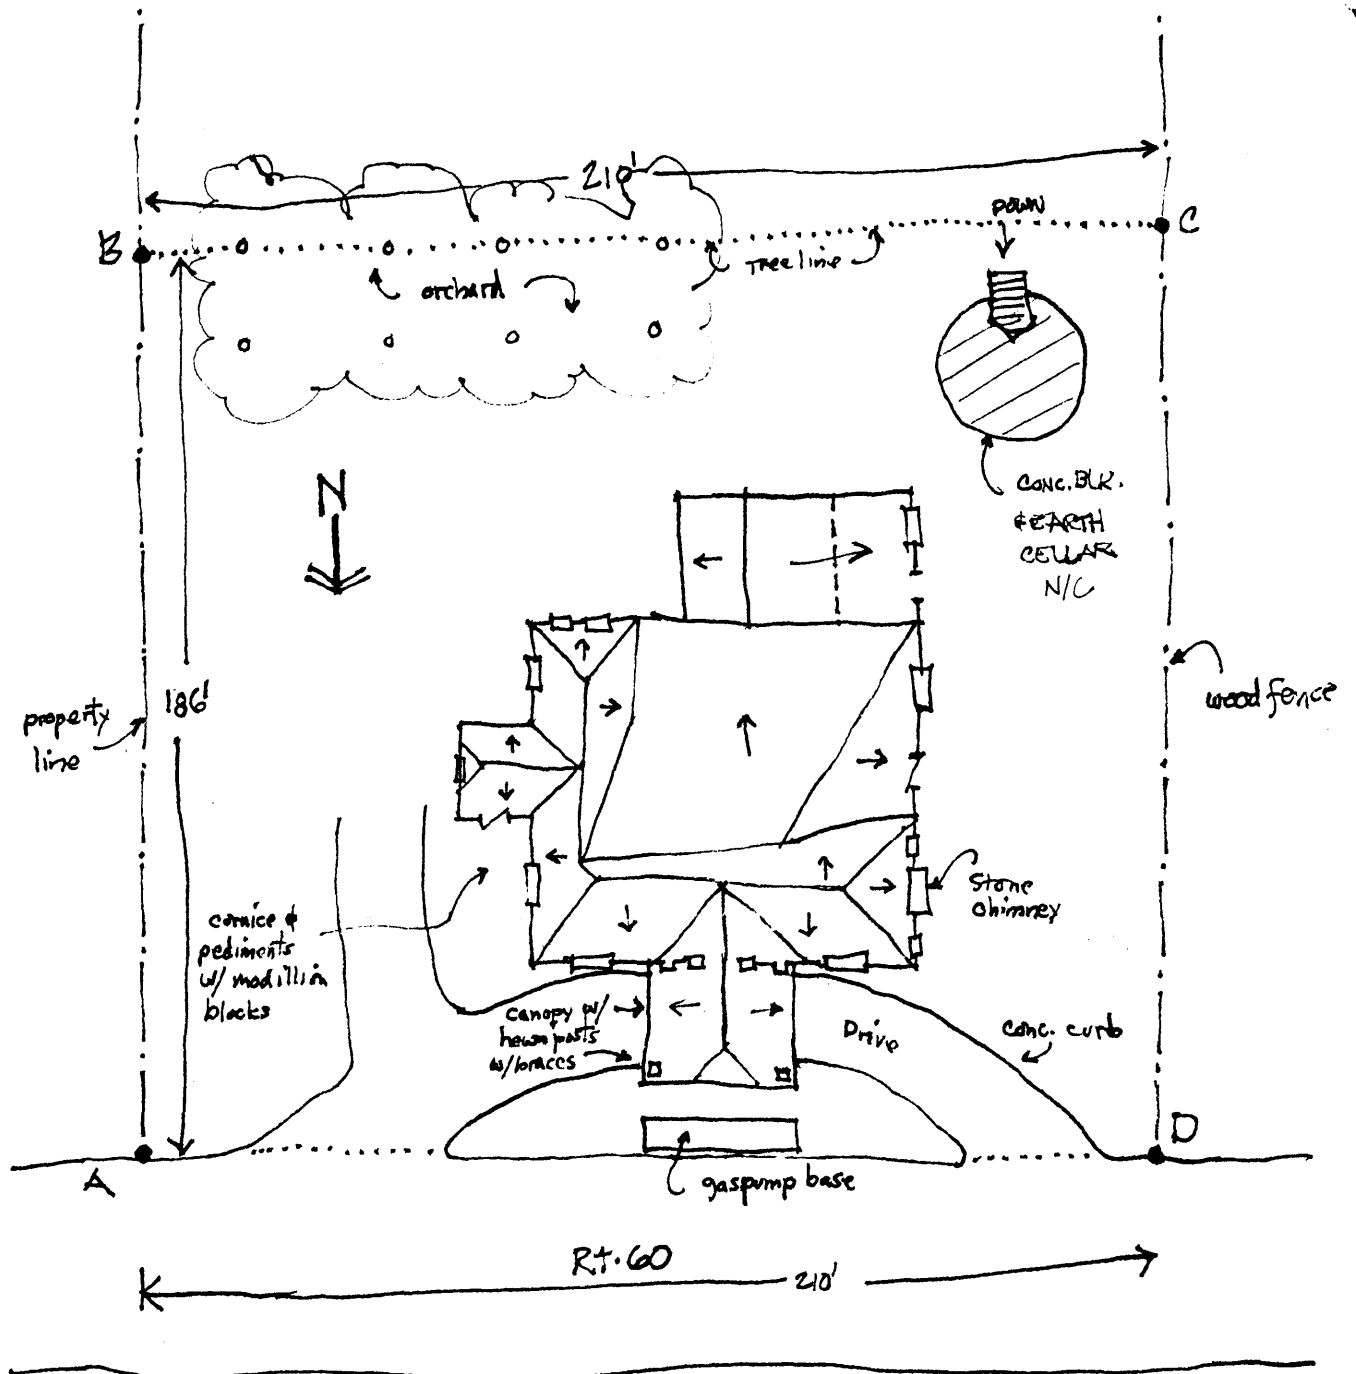 210'
DOWN
B
C
Tree line
orchard
N
CONC. BLK.
& EARTH
CELLAR
N/C
186'
property
line
wood fence
Stone
chimney
cornice &
pediments
w/ modillion
blocks
canopy w/
hewn posts
w/braces
Drive
conc. curb
D
A
gaspump base
Rt. 60
210'